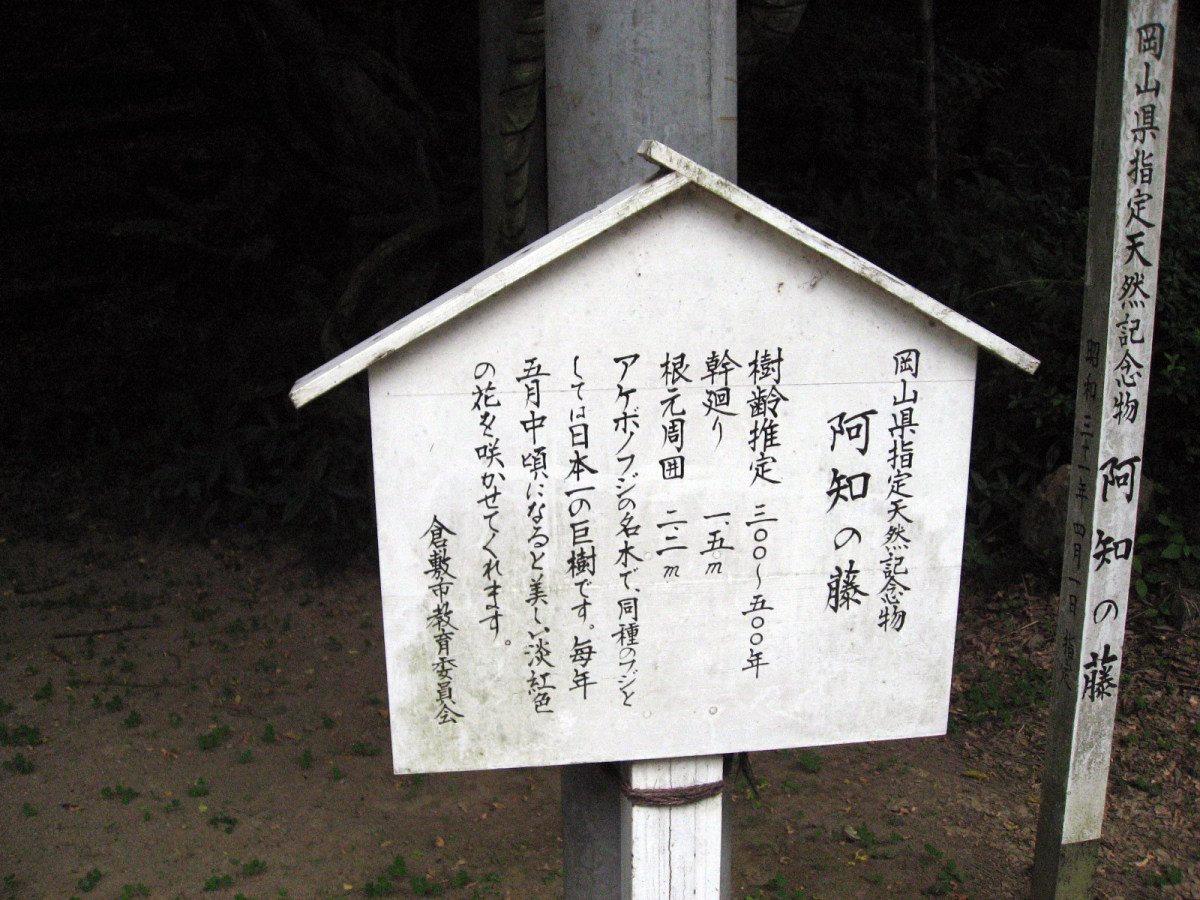 岡山県指定天然記念物
阿知の藤
樹齢推定 三〇〇〜五〇〇年
幹廻り 一、五m
根元周囲 二・二m
アケボノフジの名木で、同種のフジと
しては日本一の巨樹です。毎年
五月中頃になると美しい淡紅色
の花を咲かせてくれます。
倉敷市教育委員会
岡山県指定天然記念物 阿知の藤
昭和三十一年四月一日指定